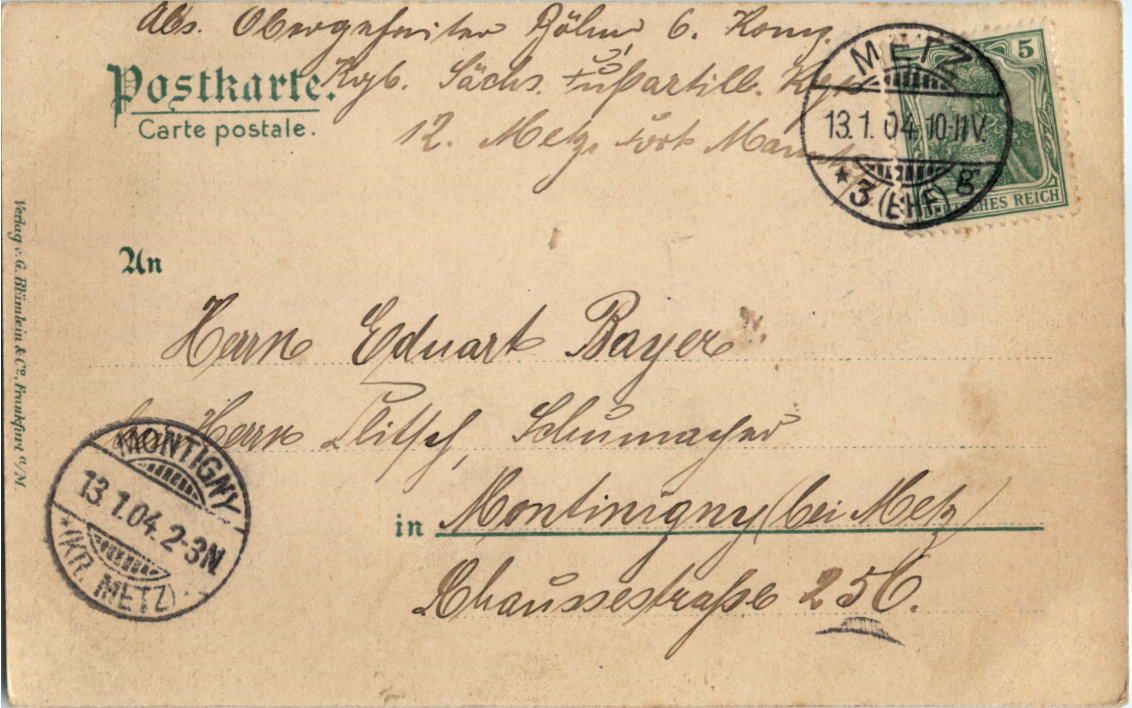 Abs. Obergefreiter Böhm 6. Komp.
Kgl. Sächs. Fußartill. Rgt.
12. Metz, Fort
Postkarte.
Carte postale.
METZ
13.1.04.10-11V.
* 3 (BHF.) g
5
DEUTSCHES REICH
An
Herrn Eduart Bayer
Herrn Flitsch, Schumacher
in Montinigny (bei Metz)
Chaussestraße 256.
MONTIGNY
13.1.04.2-3N.
* (KR. METZ)
Verlag v. G. Blümlein & Co., Frankfurt a/M.